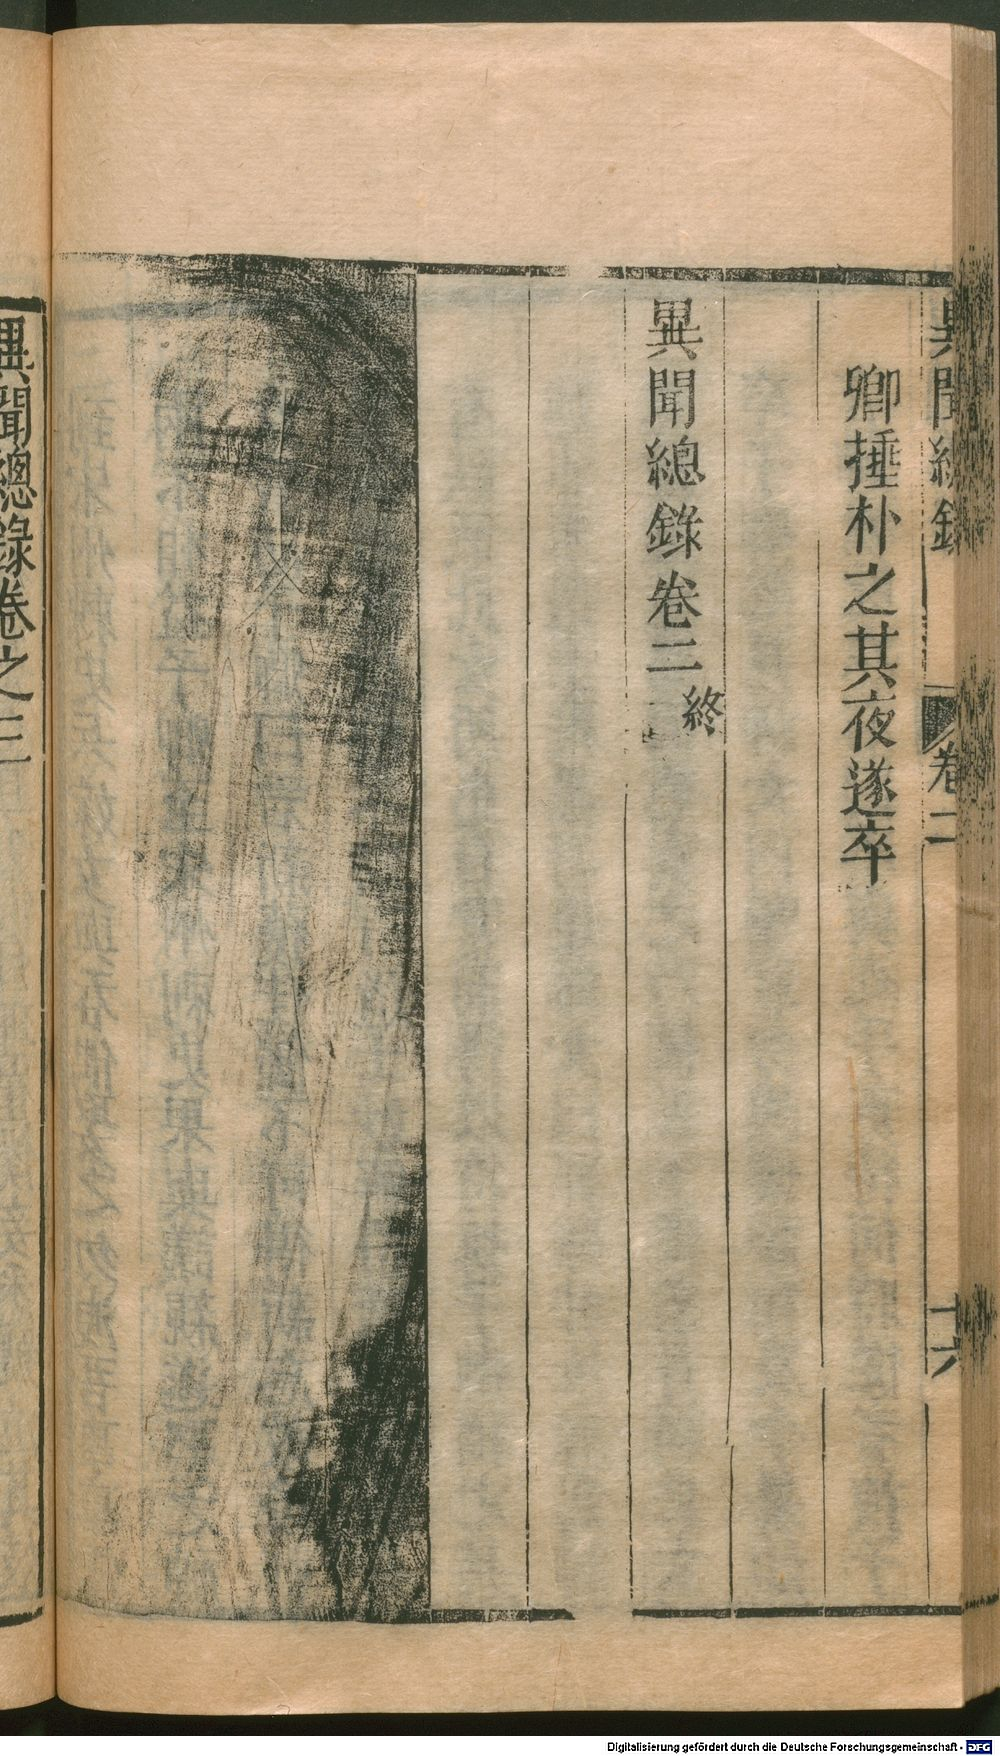 異聞總錄
卷二
十六
卿捶朴之其夜遂卒
異聞總錄卷二終
異聞總錄卷之三
Digitalisierung gefördert durch die Deutsche Forschungsgemeinschaft - DFG